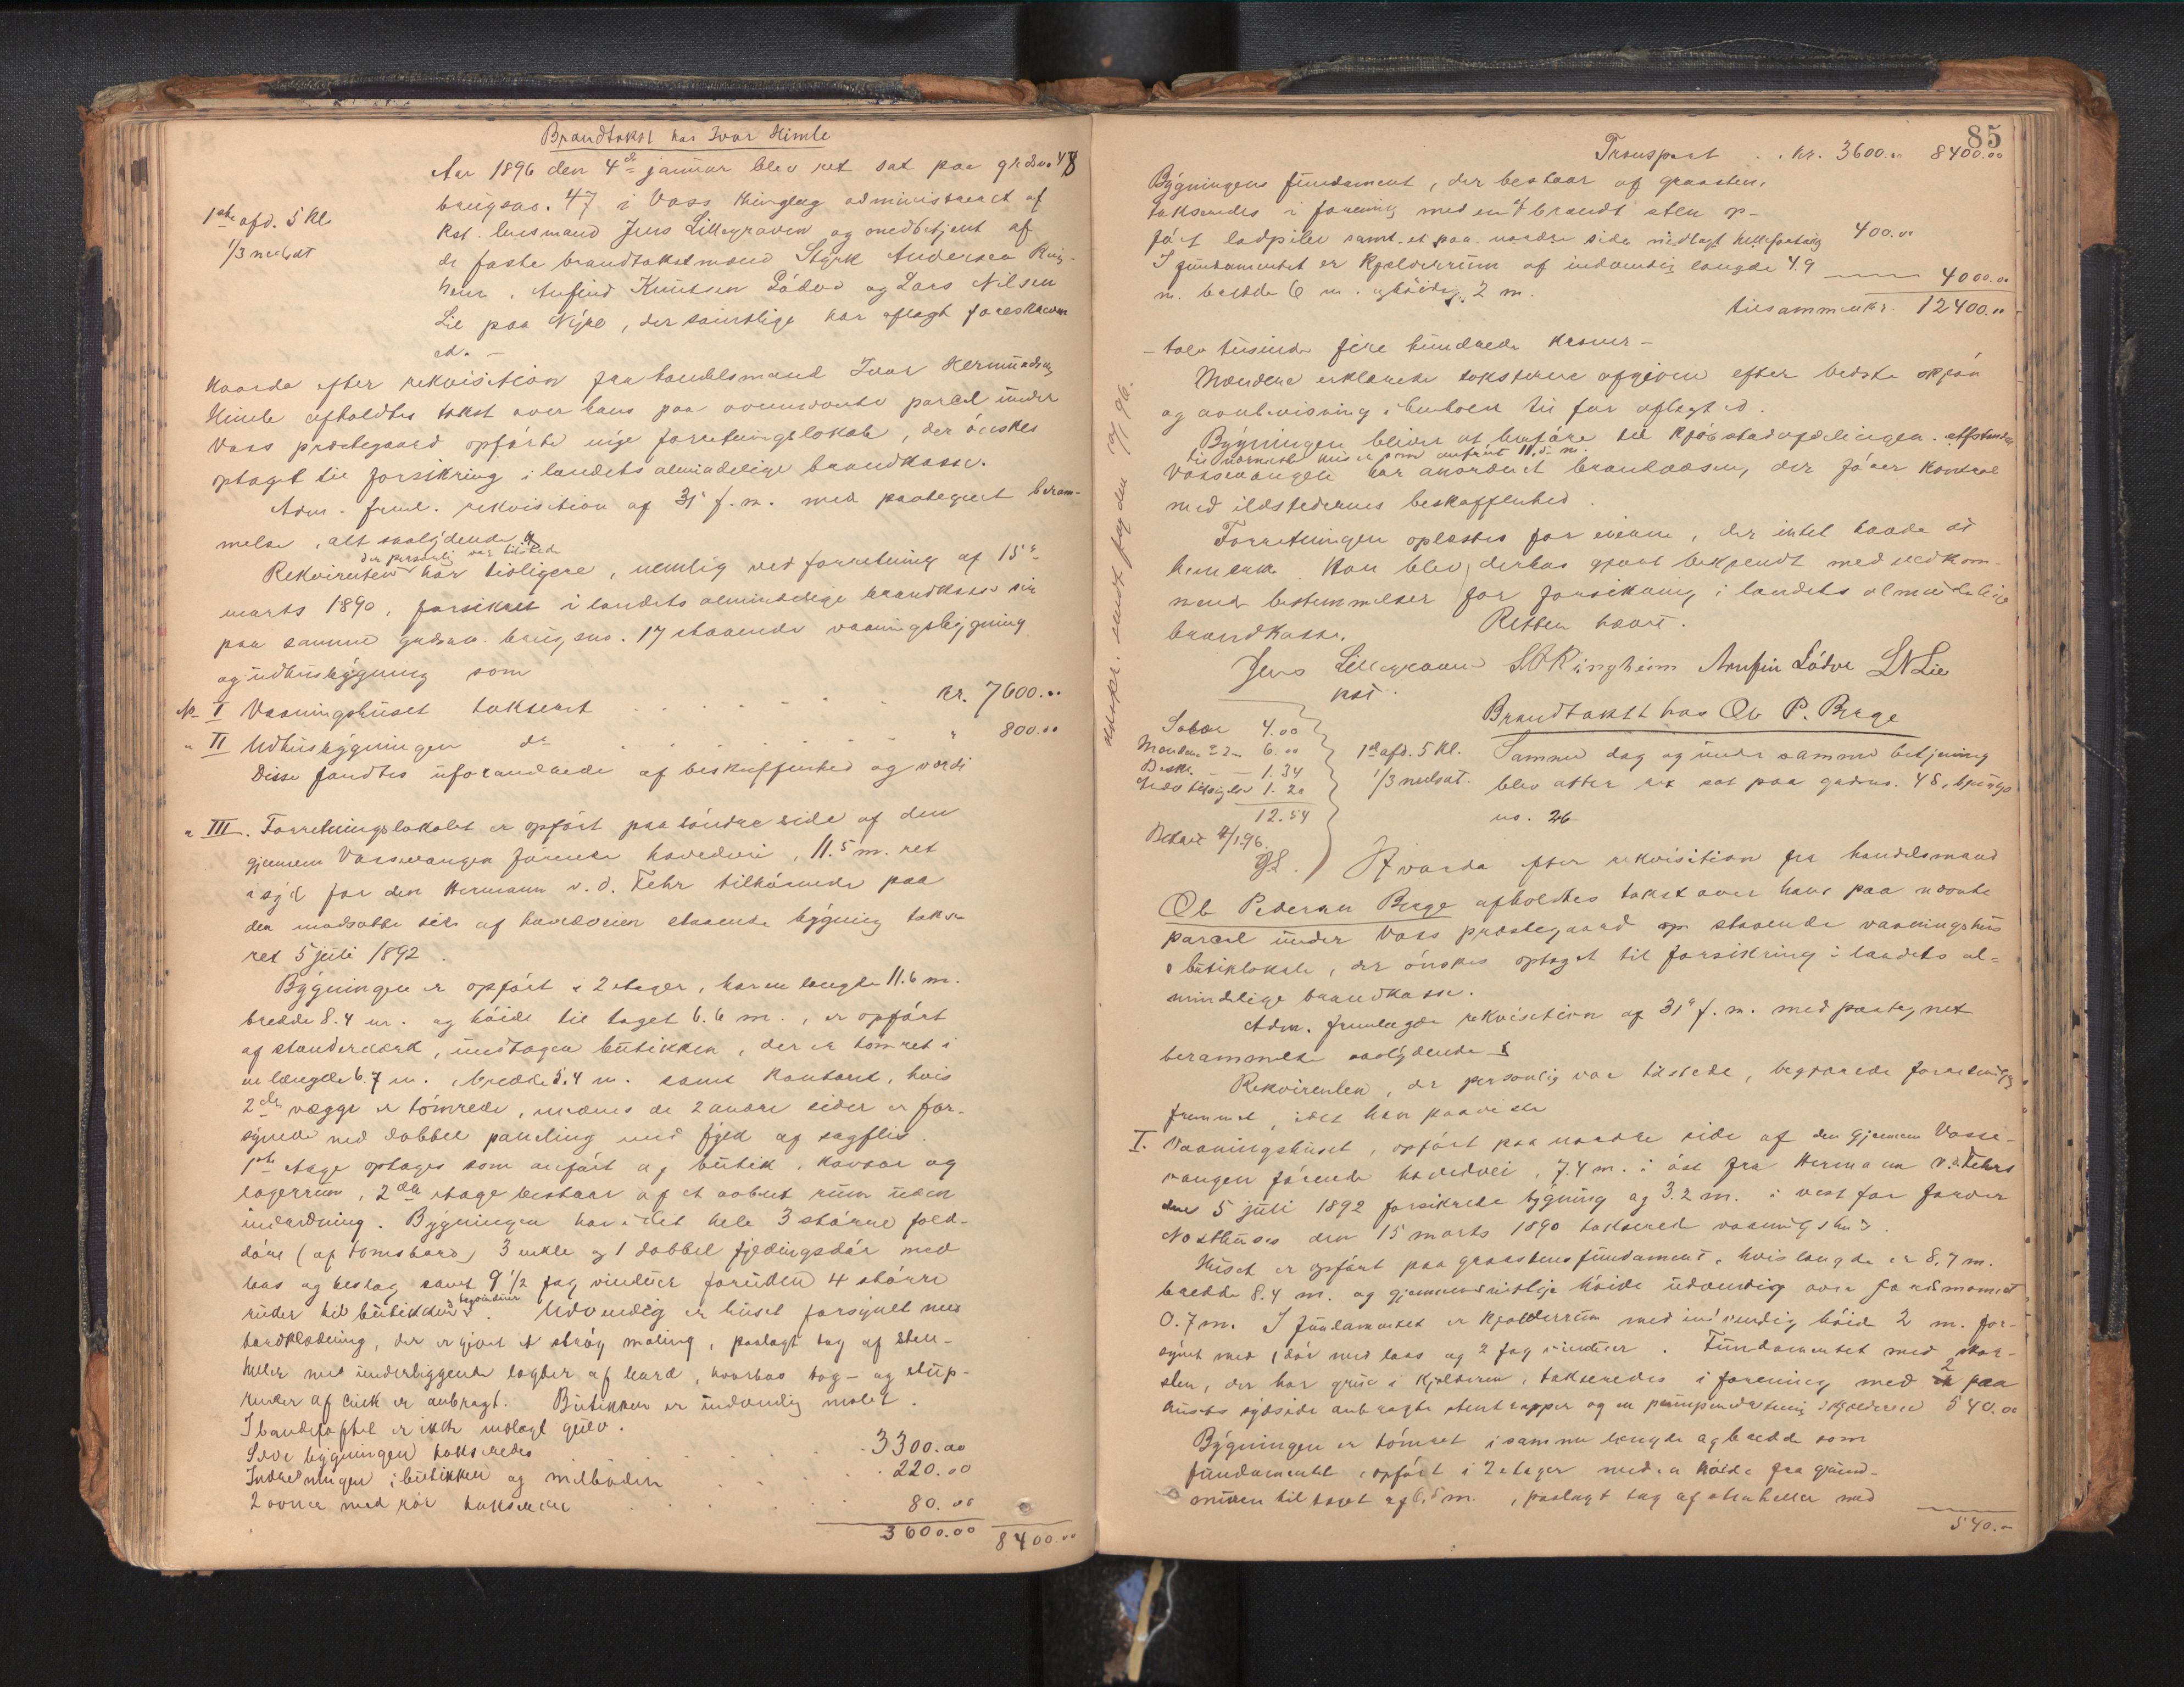 Brandtakst hos Ivar Himle
Aar 1896 den 4de januar blev ret sat paa grdsno 48
brugsno. 47 i Voss thinglag administreret af
1ste afd. 5 Kl.
1/3 nedsat
Kst. lensmand Jens Lillegraven og medbetjent af
de faste brandtakstmænd Styrk Andersen Ring-
heim, Anfind Knutsen Lödve og Lars Nilsen
Lie paa Nyre, der samtlige har aflagt foreskreven
ed. -
Hvorda efter rekvisition fra handelsmand Ivar Hermundsen
Himle afholdtes takst over hans paa ovennævnte parcel under
Voss prestegaard opförte nye forretningslokale, der önskes
optaget til forsikring i landets almindelige brandkasse.
Adm. freml. rekvisition af 31te f. m. med paategnet beram-
melse, alt saalydende
der personlig var tilstede
Rekvirenten har tidligere, nemlig ved forretning af 15de
marts 1890, forsikret i landets almindelige brandkasse sin
paa samme grdsno. brugsno. 17 staaende vaaningsbygning
og udhusbygning som
No I Vaaningshuset takseret . . . . . kr. 7600.00
" II Udhusbygningen do . . . . . " 800.00
Disse fandtes uforandrede af beskaffenhed og værdi
" III. Forretningslokalet er opfört paa söndre side af den
gjennem Vossevangen förende hovedvei, 11.5 m. ret
i syd for den Hermann v. d. Fehr tilhörende paa
den modsatte side af hovedveien staaende bygning takse
ret 5 juli 1892.
Bygningen er opfört i 2 etager, har en længde 11.6 m.
bredde 8.4 m. og höide til taget 6.6 m., er opfört
af standerverk, undtagen butikken, der er tömret i
en længde 6.7 m., bredde 5.4 m. samt kontoret, hvis
2de vægge er tömrede, medens de 2 andre sider er for-
synede med dobbel paneling med fyld af sagflis.
1ste etage optages som anfört af butik, kontor og
lagerrum, 2den etage bestaar af et aabent rum uden
indredning. Bygningen har i det hele 3 större fold-
döre (af tomsbord) 3 enkle og 1 dobbel fyldingsdör med
laas og beslag samt 9 1/2 fag vinduer foruden 4 större
ruder til butikken. Udvendig er huset forsynet med
bordklædning, der er gjort et strög maling, paalagt tag af sten-
heller med underliggende lægter af bord, hvorhos tag- og stup-
render af zink er anbragt. Butikken er indvendig malet.
I er ikke indlagt gulv.
Selve bygningen takseredes . . . . 3300.00
Indredningen i butikken og . . . . 220.00
2 ovne med rör takserede . . . . 80.00
3600.00 8400.00
85
Transport . . kr. 3600.00 8400.00
Bygningens fundament, der bestaar af graasten,
takseredes i forening med en af brændt sten op-
fört ladpibe samt et paa nordre side nedlagt hellefortoug 400.00
I fundamentet er kjælderrum af indvendig længde 4.9 4000.00
m. bredde 6 m. og höide 2 m.
tilsammen kr. 12400.00
- tolv tusinde fire hundrede kroner -
Mændene erklærede taksterne afgivne efter bedste skjön
og overbevisning i henhold til för aflagt ed.
Bygningen bliver at henföre til kjöbstadafdelingen. Afstanden
til nærmeste hus er som anfört 11.5 m.
Vossevangen har anordnet brandvæsen, der förer kontrol
med ildstedernes beskaffenhed.
Forretningen oplæstes for eieren, der intet havde at
bemærke. Han blev derhos gjort bekjendt med vedkom-
mende bestemmelser for forsikring i landets almindelige
brandkasse.
Retten hævet.
Jens Lillegraven S A Ringheim Arnfin Lödve L N Lie
kst.
Salær 4.00
Mændene 6.00
Beskr. 1.34
1.20
12.54
Betalt 4/1 96.
JL.
Brandtakst hos Ole P. Berge
1ste afd. 5 Kl.
1/3 nedsat.
Samme dag og under samme betjening
blev atter ret sat paa grdsno. 48, brugs
no. 26
Hvorda efter rekvisition fra handelsmand
Ole Pedersen Berge afholdtes takst over hans paa nævnte
parcel under Voss prestegaard staaende vaaningshus
& butiklokale, der önskes optaget til forsikring i landets al-
mindelige brandkasse.
Adm. fremlagde rekvisition af 31te f. m. med paategnet
berammelse saalydende
Rekvirenten, der personlig var tilstede, begjærede forretningen
fremmet, idet han paaviste
I. Vaaningshuset, opfört paa nordre side af den gjennem Vosse-
vangen förende hovedvei, 7.4 m. i öst fra Hermann v. d. Fehrs
den 5 juli 1892 forsikrede bygning og 3.2 m. i vest for
den 15 marts 1890 takserede vaaningshus.
Huset er opfört paa graastensfundament, hvis længde er 8,7 m.
bredde 8.4 m. og gjennemsnitlige höide udvendig over
0.7 m. I fundamentet er kjælderrum med indvendig höid 2 m. for-
synet med 1 dör med laas og 2 fag vinduer. Fundamentet med skor-
sten, der har grue i kjælderen, takseredes i forening med 2 paa
husets sydside anbragte stentrapper og en pumpeindretning i kjælderen 540.00
Bygningen er tömret i samme længde og bredde som
fundamentet, opfört i 2 etager med en höide fra grund-
muren til taget af 6.5 m., paalagt tag af stenheller med
540.00